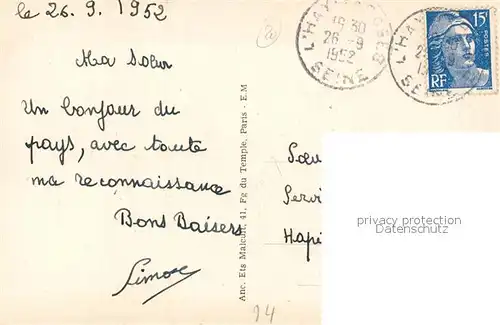 le 26.9.1952
20
Ma Sœur
Un bonjour du
pays, avec toute
ma reconnaissance
Bons Baisers
Simone
Anc. Ets Malcuit, 41, Fg du Temple, Paris - E.M
L'HAY
19 30
26 - 9
1952
SEINE
L'HAY
SEINE
15F
POSTES
RF
Sœu
Servi
privacy protection
Datenschutz
94